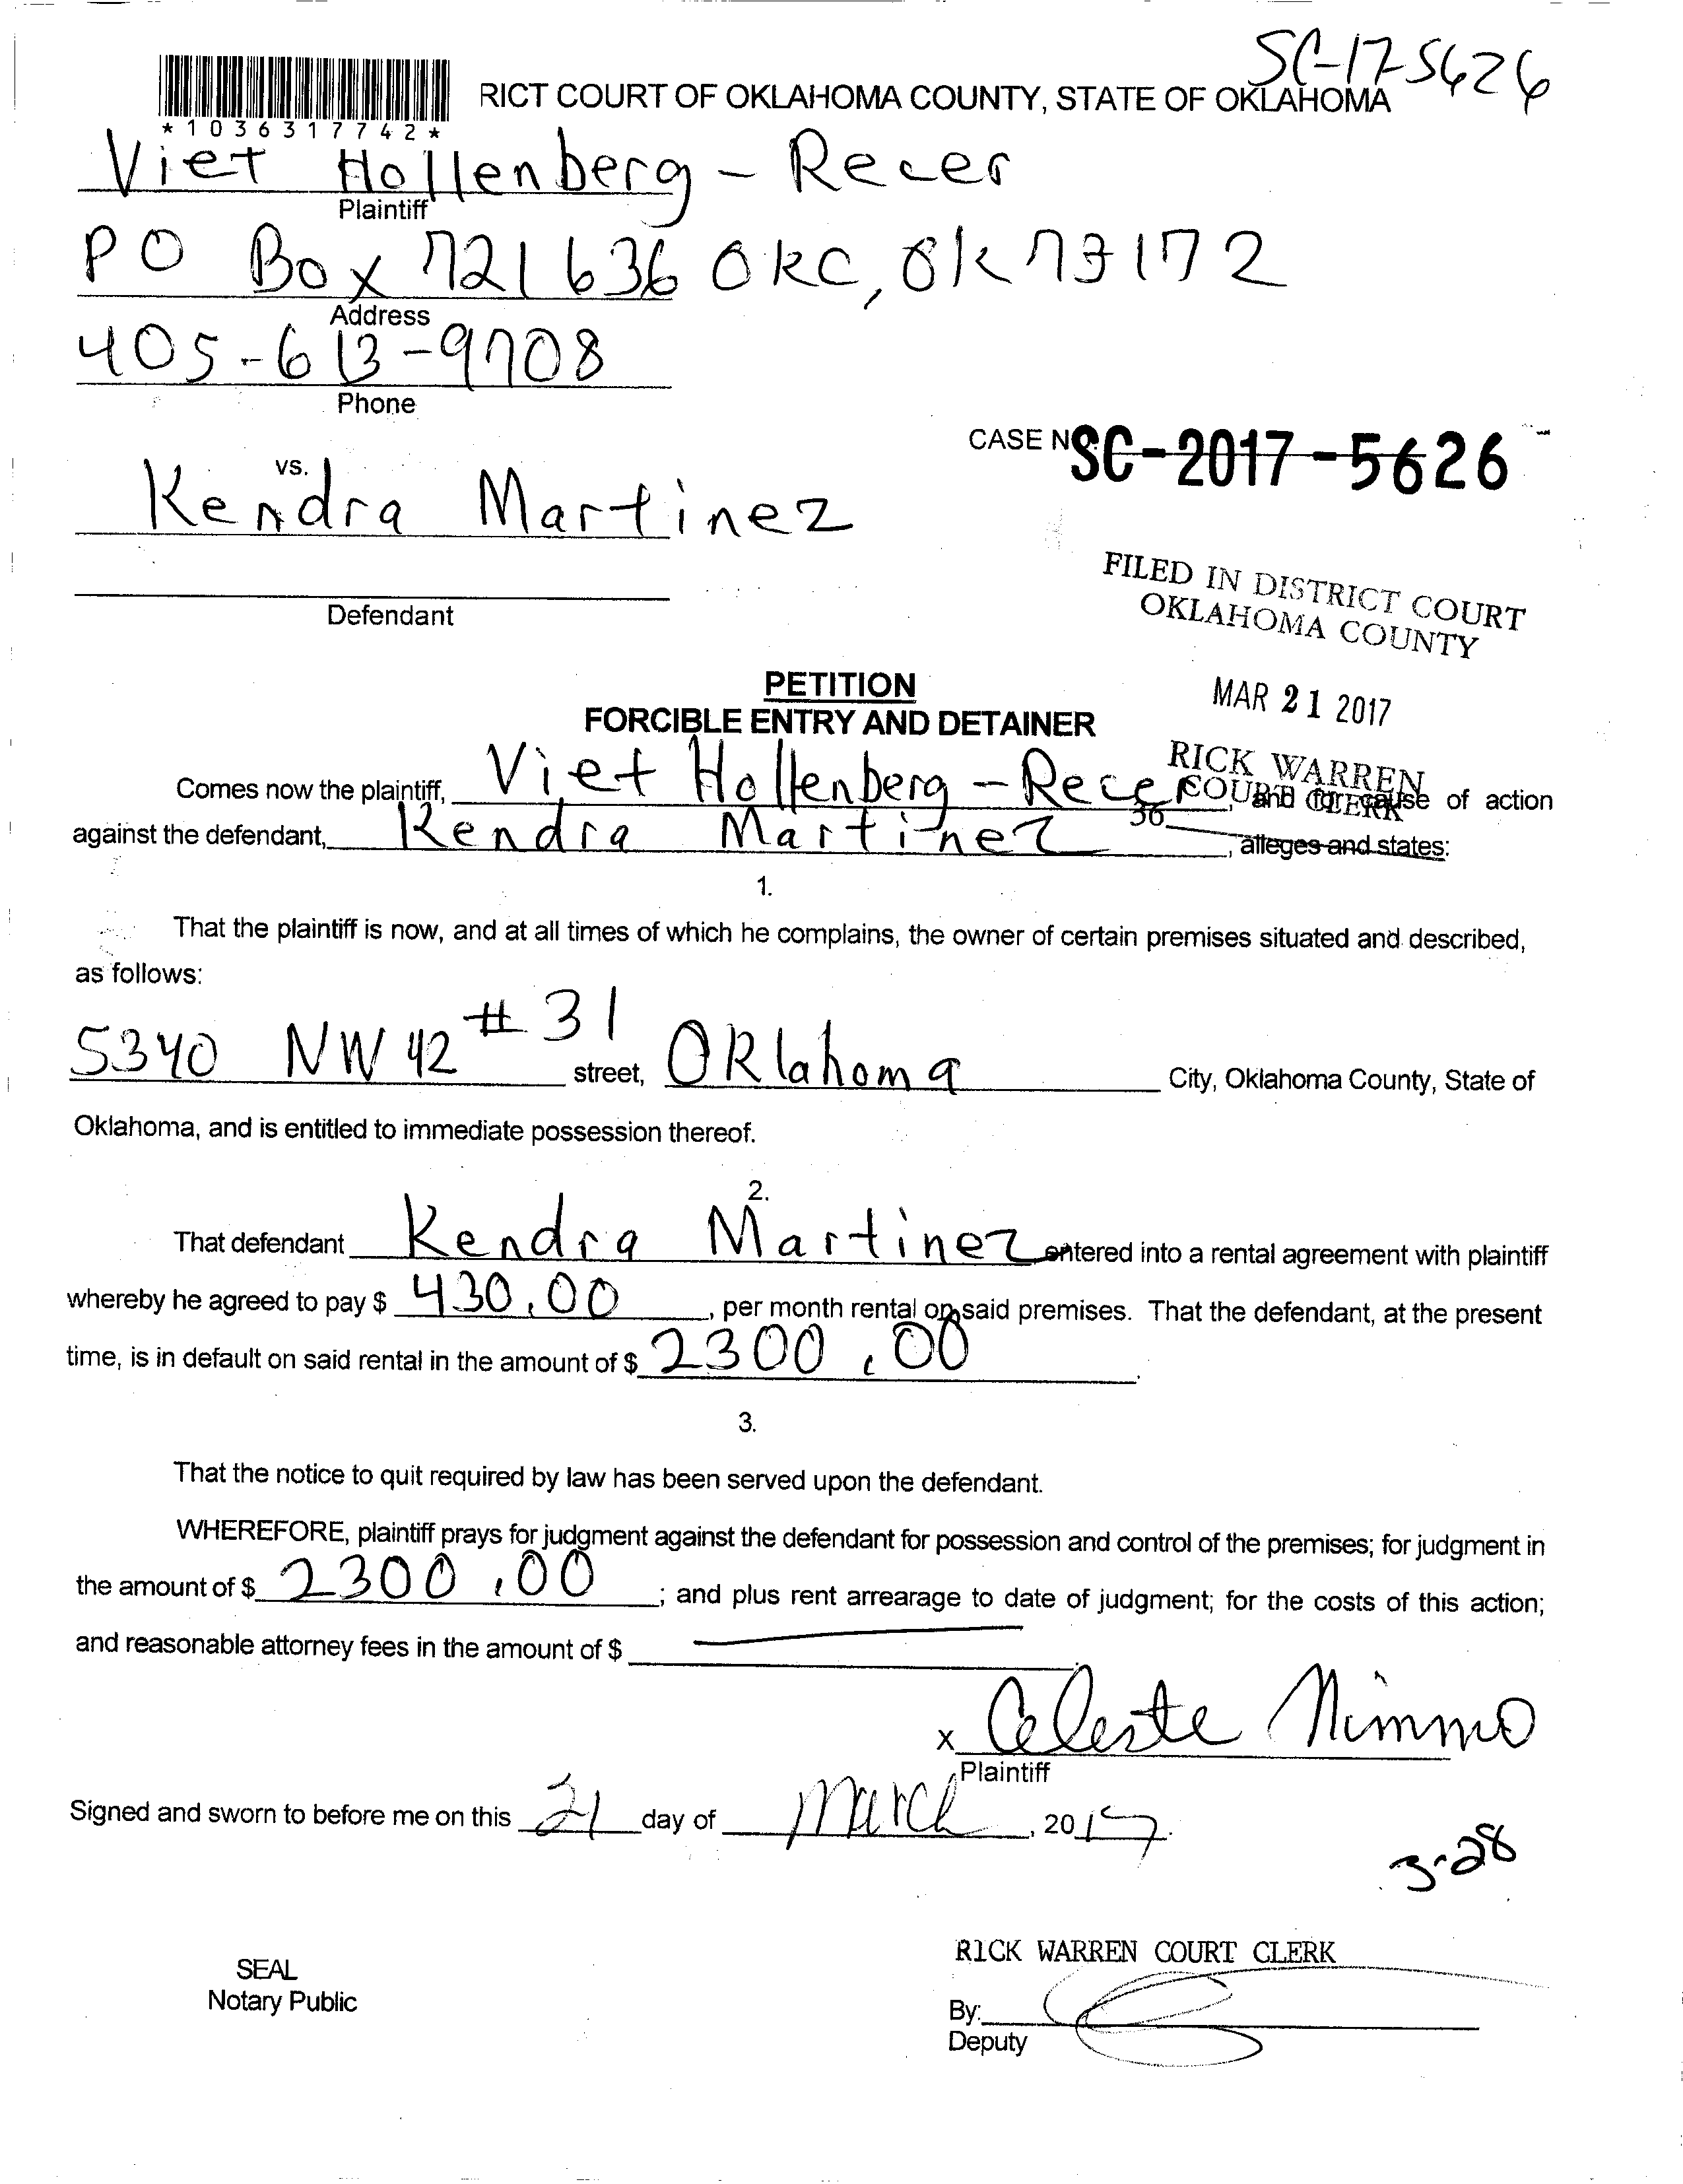 SC-17-5626
RICT COURT OF OKLAHOMA COUNTY, STATE OF OKLAHOMA
*1036317742*
Viet Hollenberg - Recer
Plaintiff
PO Box 721636 OKC, Ok 73172
Address
405-613-9708
Phone
CASE NO. SC-2017-5626
vs.
Kendra Martinez
Defendant
FILED IN DISTRICT COURT
OKLAHOMA COUNTY
MAR 21 2017
RICK WARREN
COURT CLERK
36
PETITION
FORCIBLE ENTRY AND DETAINER
Comes now the plaintiff, Viet Hollenberg - Recer, and for cause of action
against the defendant, Kendra Martinez, alleges and states:
1.
That the plaintiff is now, and at all times of which he complains, the owner of certain premises situated and described,
as follows:
5340 NW 42 # 31 street, Oklahoma City, Oklahoma County, State of
Oklahoma, and is entitled to immediate possession thereof.
2.
That defendant Kendra Martinez entered into a rental agreement with plaintiff
whereby he agreed to pay $ 430.00, per month rental on said premises. That the defendant, at the present
time, is in default on said rental in the amount of $ 2300.00.
3.
That the notice to quit required by law has been served upon the defendant.
WHEREFORE, plaintiff prays for judgment against the defendant for possession and control of the premises; for judgment in
the amount of $ 2300.00; and plus rent arrearage to date of judgment; for the costs of this action;
and reasonable attorney fees in the amount of $
x Celeste Nimmo
Plaintiff
Signed and sworn to before me on this 21 day of March, 2017.
3-28
SEAL
Notary Public
RICK WARREN COURT CLERK
By:
Deputy